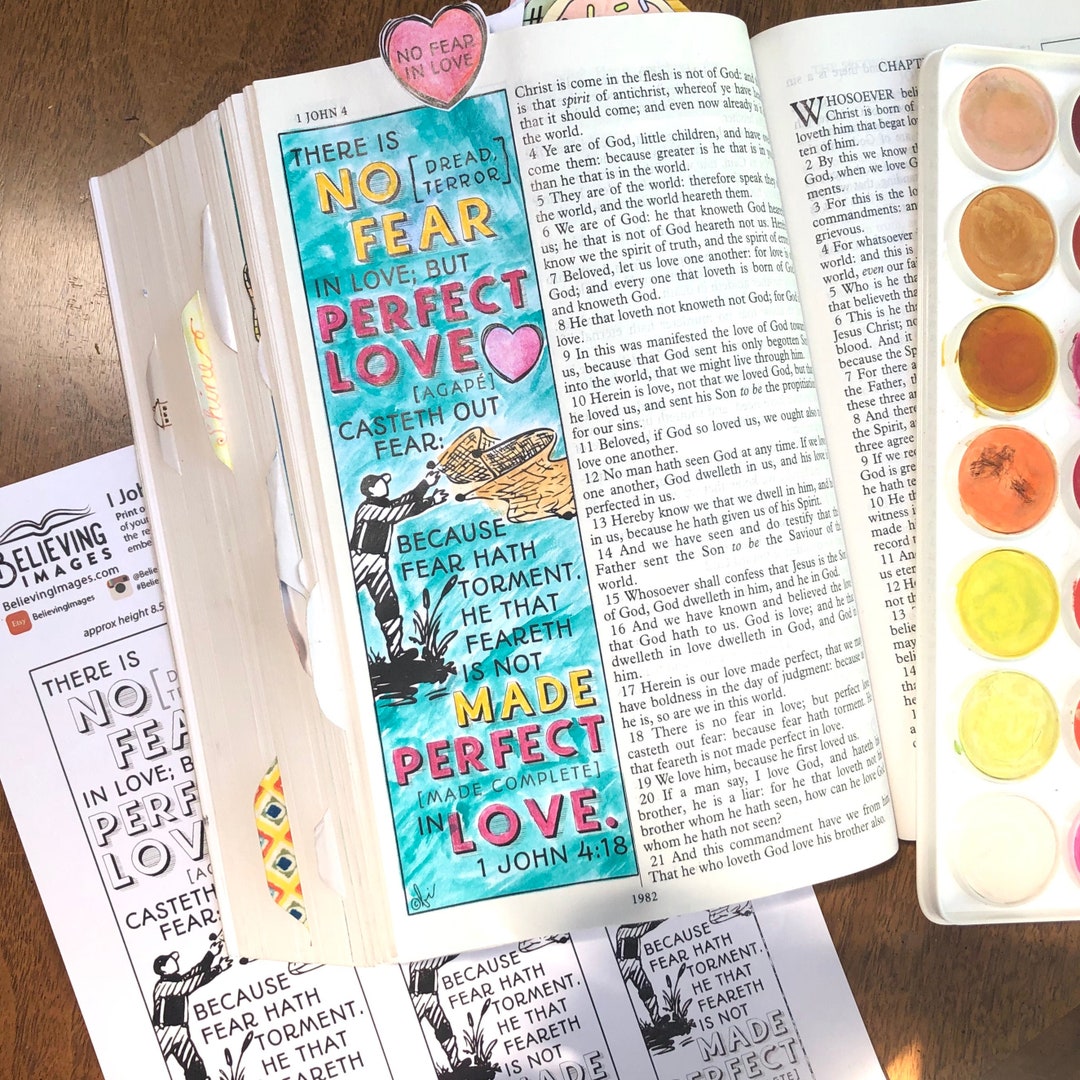 NO FEAR
IN LOVE
1 JOHN 4
THERE IS
NO [DREAD,
TERROR]
FEAR
IN LOVE; BUT
PERFECT
LOVE
[AGAPÉ]
CASTETH OUT
FEAR:
BECAUSE
FEAR HATH
TORMENT.
HE THAT
FEARETH
IS NOT
MADE
PERFECT
[MADE COMPLETE]
IN LOVE.
1 JOHN 4:18
Christ is come in the flesh is not of God: and
is that spirit of antichrist, whereof ye have
that it should come; and even now already is
the world.
4 Ye are of God, little children, and have
come them: because greater is he that is in
than he that is in the world.
5 They are of the world: therefore speak they
the world, and the world heareth them.
6 We are of God: he that knoweth God heareth
us; he that is not of God heareth not us. Hereby
know we the spirit of truth, and the spirit of error.
7 Beloved, let us love one another: for love is
God; and every one that loveth is born of God,
and knoweth God.
8 He that loveth not knoweth not God; for God
love.
9 In this was manifested the love of God toward
us, because that God sent his only begotten Son
into the world, that we might live through him.
10 Herein is love, not that we loved God, but that
he loved us, and sent his Son to be the propitiation
for our sins.
11 Beloved, if God so loved us, we ought also
love one another.
12 No man hath seen God at any time. If we love
one another, God dwelleth in us, and his love
perfected in us.
13 Hereby know we that we dwell in him, and he
in us, because he hath given us of his Spirit.
14 And we have seen and do testify that the
Father sent the Son to be the Saviour of the
world.
15 Whosoever shall confess that Jesus is the Son
of God, God dwelleth in him, and he in God.
16 And we have known and believed the love
that God hath to us. God is love; and he that
dwelleth in love dwelleth in God, and God in
him.
17 Herein is our love made perfect, that we may
have boldness in the day of judgment: because as
he is, so are we in this world.
18 There is no fear in love; but perfect love
casteth out fear: because fear hath torment. He
that feareth is not made perfect in love.
19 We love him, because he first loved us.
20 If a man say, I love God, and hateth his
brother, he is a liar: for he that loveth not his
brother whom he hath seen, how can he love God
whom he hath not seen?
21 And this commandment have we from him,
That he who loveth God love his brother also.
1982
CHAPT
WHOSOEVER
Christ is born of
loveth him that begat
ten of him.
2 By this we know
God, when we love
ments.
3 For this is the
commandments: and
grievous.
4 For whatsoever
world: and this is
world, even our
5 Who is he
that believeth
6 This is he
Jesus Christ;
blood. And it
because the
7 For there
the Father,
these three
8 And there
the Spirit,
three agree
9 If we
God is
he hath
10 He
witness
made
record
11
12
not
13
14
BELIEVING
IMAGES
BelievingImages.com
Etsy BelievingImages
approx height 8.5
THERE IS
NO
FEA
IN LOVE; B
PERF
LOV
CASTETH
FEAR:
BECAUSE
FEAR HATH
TORMENT.
HE THAT
FEARETH
BECAUSE
FEAR HATH
TORMENT.
HE THAT
FEARETH
IS NOT
MADE
BECAUSE
FEAR HATH
TORMENT.
HE THAT
FEARETH
IS NOT
MADE
PERFECT